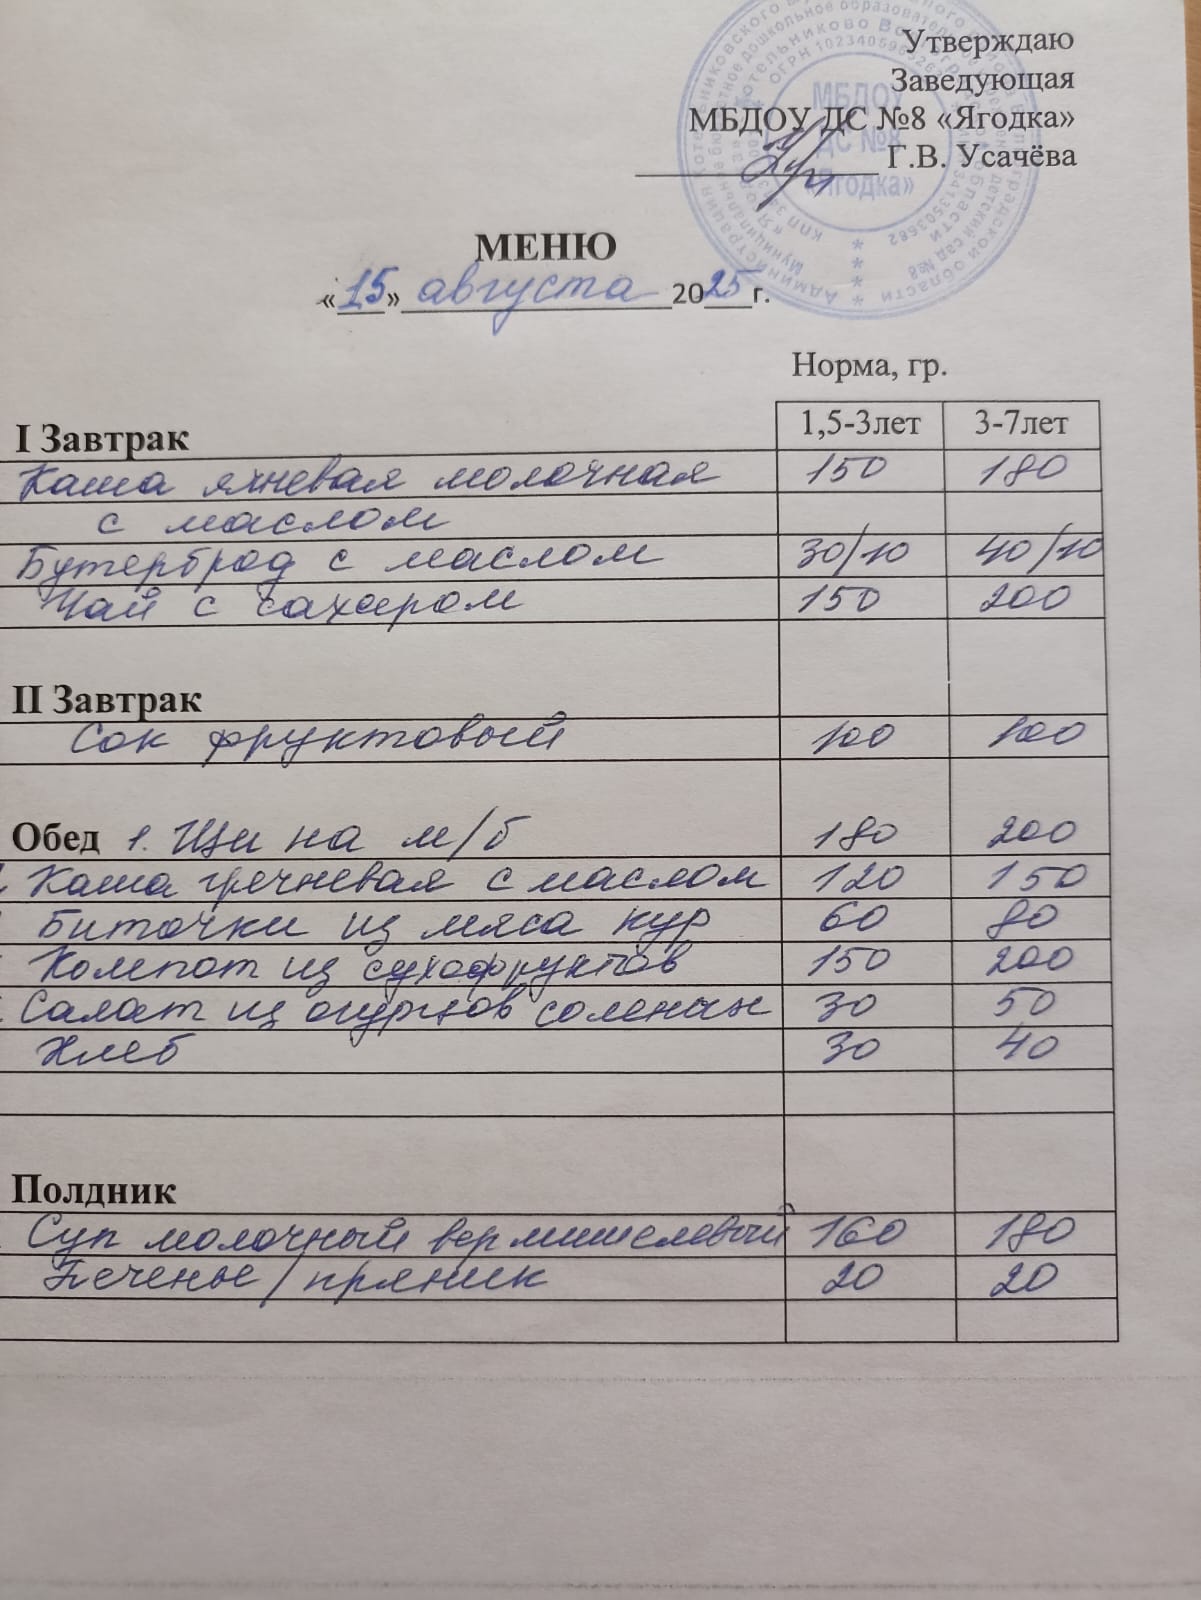 Утверждаю
Заведующая
МБДОУ ДС №8 «Ягодка»
Г.В. Усачёва
МБДОУ
ДС №8
«Ягодка»
МЕНЮ
«15» августа 2025 г.
Норма, гр.
I Завтрак 1,5-3лет 3-7лет
Каша ячневая молочная 150 180
с маслом
Бутерброд с маслом 30/10 40/10
Чай с сахаром 150 200
II Завтрак
Сок фруктовый 100 100
Обед 1. Щи на м/б 180 200
Каша гречневая с маслом 120 150
Биточки из мяса кур 60 80
Компот из сухофруктов 150 200
Салат из огурцов солёных 30 50
Хлеб 30 40
Полдник
Суп молочный вермишелевый 160 180
Печенье/пряник 20 20